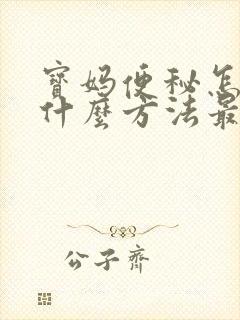 寶媽便秘怎
什麼方法最
公子齊